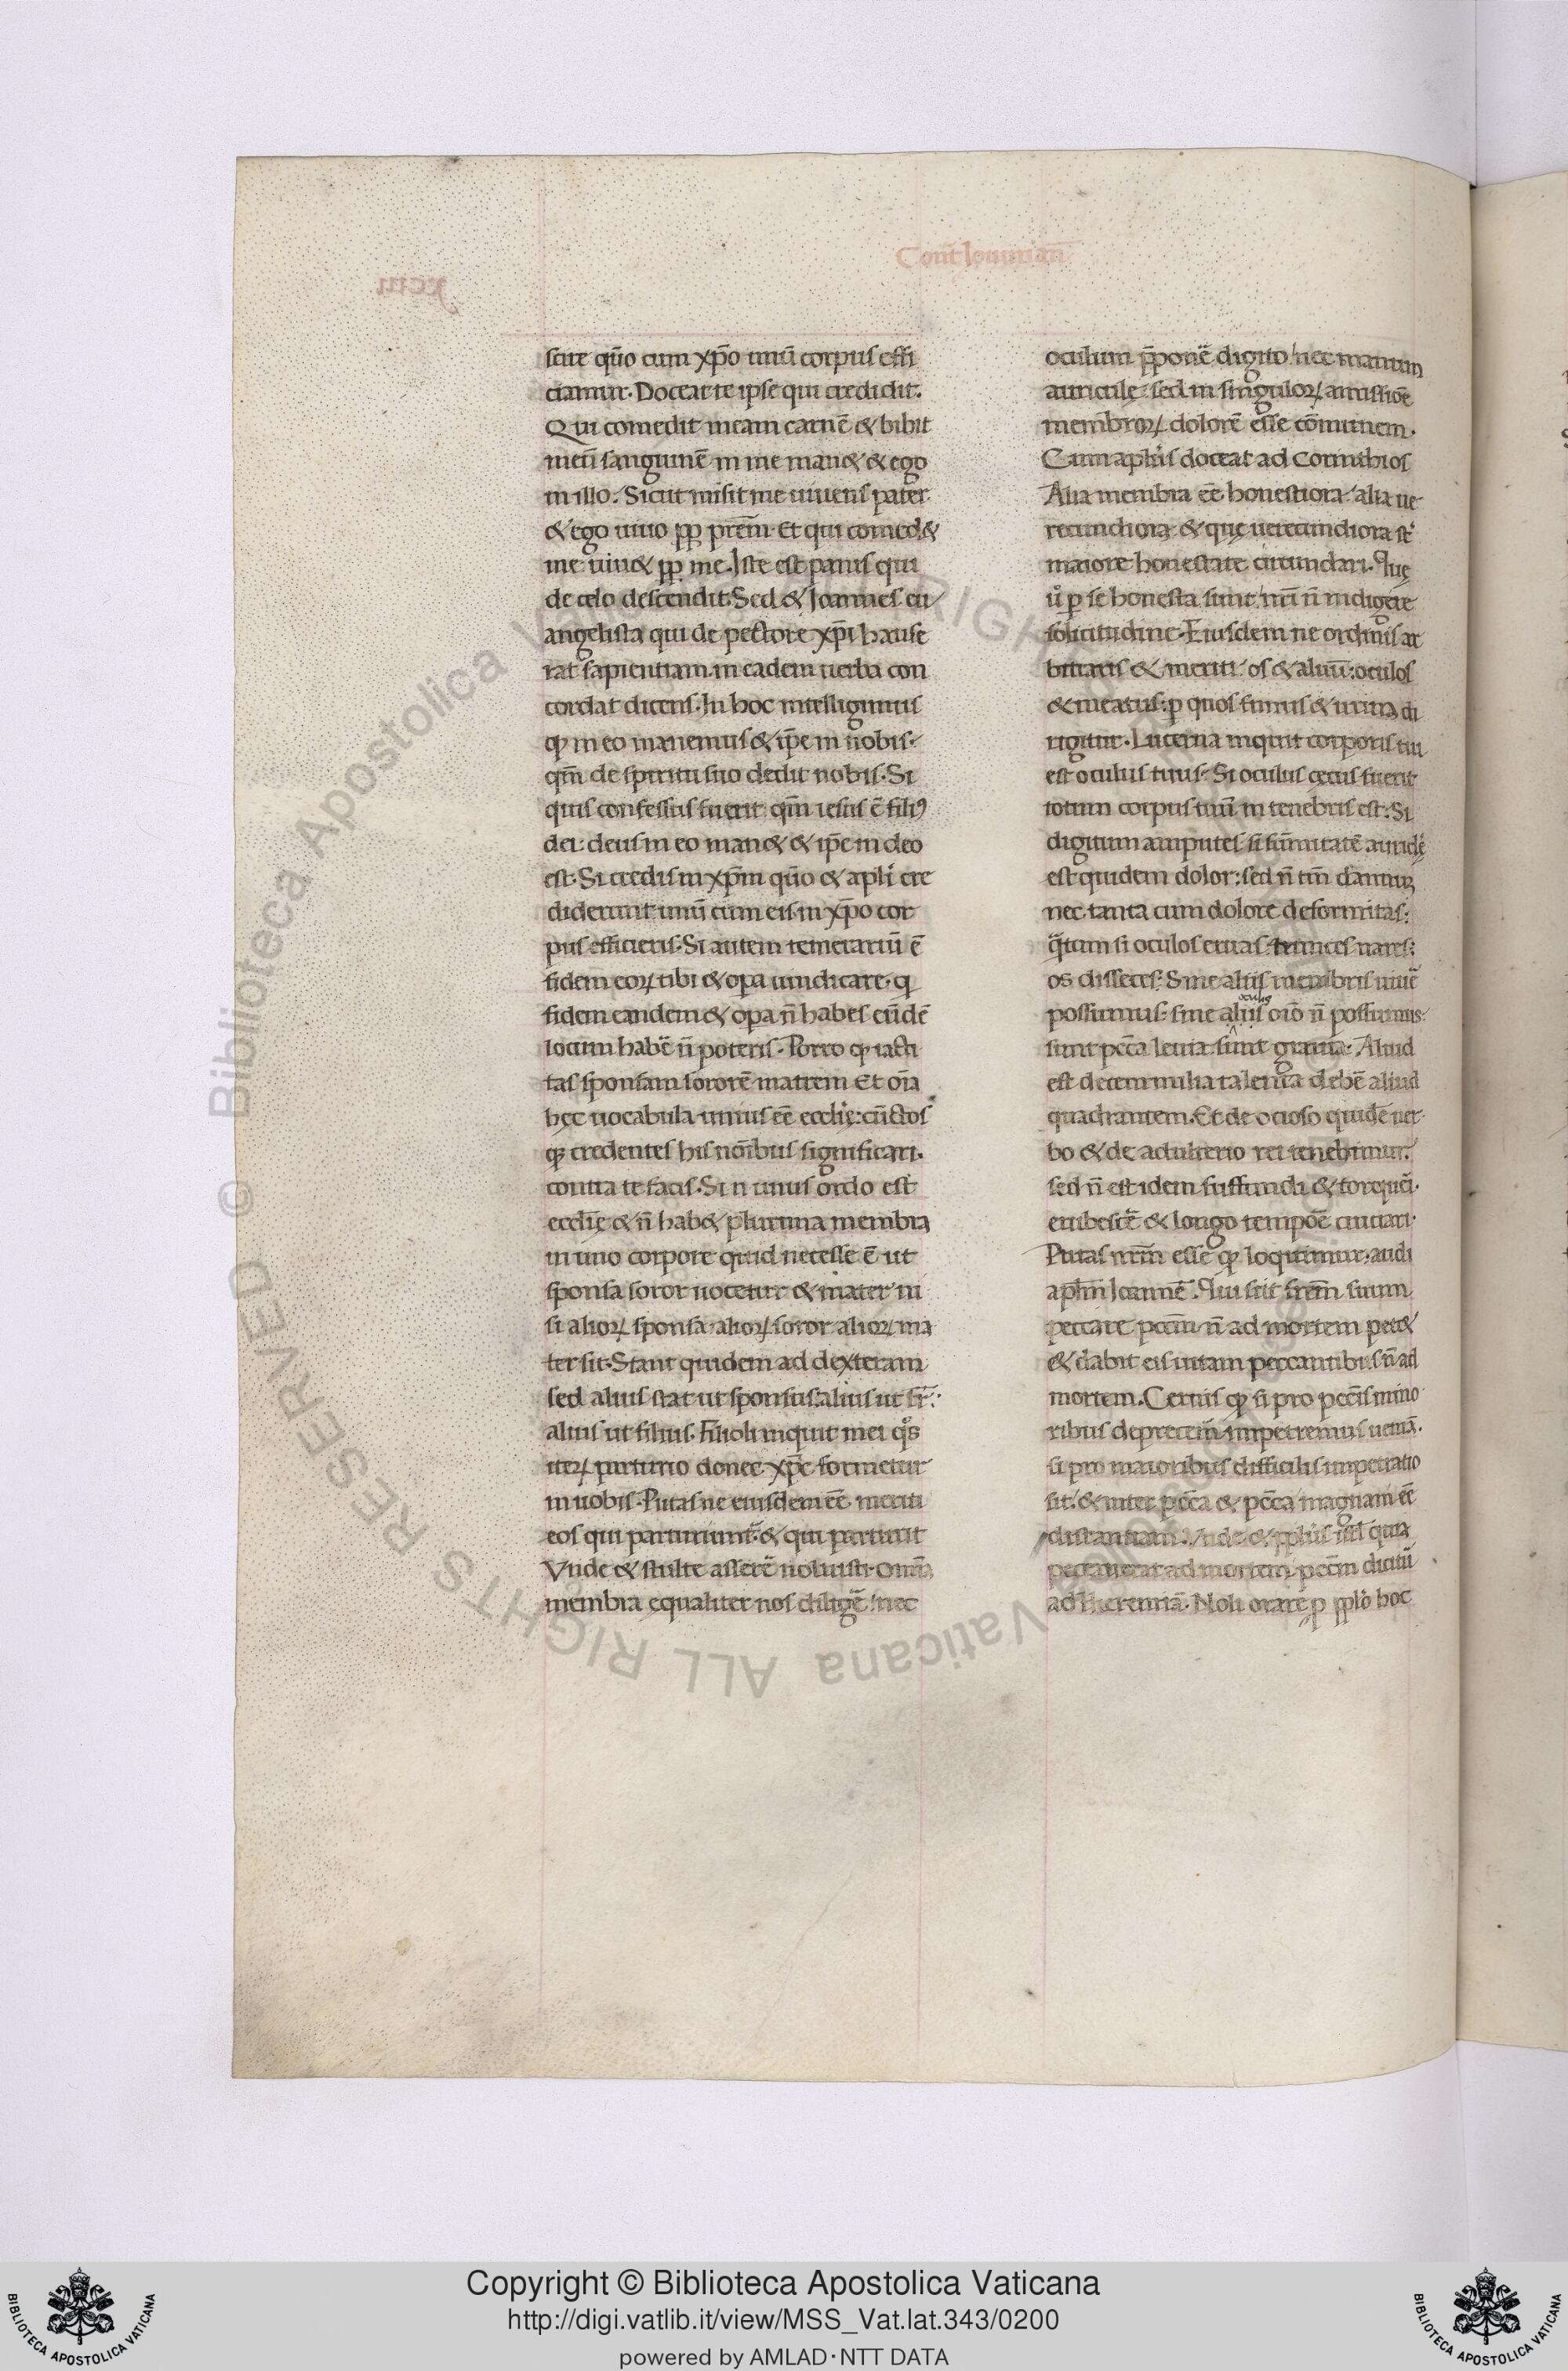 Cont̄ Iouinian̄
xciii
scire qūo cum xp̄o unū corpus effi
ciamur. Doceat te ipse qui credidit.
Qui comedit meam carnē & bibit
meū sanguinē in me man& & ego
in illo. Sicut misit me uiuens pater
& ego uiuo pp̄ prēm. Et qui comed&
me uiu& pp̄ me. Iste est panis qui
de celo descendit. Sed & Ioannes eu
angelista qui de pectore xp̄i hause
rat sapientiam. in eadem uerba con
cordat dicens. In hoc intelligimus
qp in eo manemus & ip̄e in nobis.
qm̄ de spiritu suo dedit nobis. Si
quis confessus fuerit qm̄ iesus ē filiꝰ
dei: deus in eo man& & ip̄e in deo
est. Si credis in xp̄m qūo & apl̄i cre
diderunt unū cum eis in xp̄o cor
pus efficieris. Si autem temerariū ē
fidem eoꝝ tibi & oꝑa uindicare. q
fidem eandem & oꝑa n̄ habes eūdē
locum habē n̄ poteris. Porro qp iacti
tas sponsam sororē matrem Et oīa
hęc uocabula unius eē eccl̄ię: cūctos
qꝫ credentes his noībus significari.
contra te facis. Si n̄ unus ordo est
eccl̄ię & n̄ hab& plurima membra
in uno corpore quid necesse ē ut
sponsa soror uocetur & mater ni
si alioꝝ sponsa alioꝝ soror alioꝝ ma
ter sit. Stant quidem ad dexteram
sed alius stat ut sponsus. alius ut fr̄:
alius ut filius. Filioli inquit mei qͦs
iteꝝ parturio donec xp̄c formetur
in uobis. Putas ne eiusdem eē meriti
eos qui parturiunt̄. & qui parturit
Vnde & stulte asserē uoluisti. Omīa
membra equaliter nos diligē! nec
oculum p̄ponē digito! nec manum
auriculę: sed in singuloꝝ amissiōe
membroꝝ dolorē esse cōmunem.
Cum apl̄us doceat ad Corinthios
Alia membra eē honestiora. alia ue
recundiora & quę uerecundiora st̄
maiore honestate circundari. Quę
ůꝑ se honesta sunt nr̄i n̄ indigere
solicitudine. Eiusdem ne ordinis ar
bitraris & meriti os & aluū: oculos
& meatus: ꝑ quos fimus & urina di
rigitur. Lucerna inquit corporis tui
est oculus tuus. Si oculus cęcus fuerit
totum corpus tuū in tenebris est: Si
digitum amputes. si sūmitatē auriclę
est quidem dolor: sed n̄ tm̄ damnū
nec tanta cum dolore deformitas:
q̄tum si oculos eruas: trunces nares:
os disseces: Sine aliis membris uiuē
possumus: sine aliis oculis oīo n̄ possumus:
sunt pcc̄a leuia. sunt grauia. Aliud
est decem milia talenta debē aliud
quadrantem. Et de ocioso quidē uer
bo & de adulterio rei tenebimur.
sed n̄ est idem suffundi & torqueri.
erubescē & longo tempōe cruciari.
Putas nr̄m esse qp loquimur. audi
apl̄m Ioannē. Qui scit fr̄em suum
peccare pccm̄ n̄ ad mortem pet&
& dabit eis uitam peccantibus n̄ ad
mortem. Cernis qp si pro pecc̄is mino
ribus deprecem̄ impetremus ueniā.
si pro maioribus difficilis impetratio
sit. & inter pcc̄a & pcc̄a magnam eē
distantiam. Vnde & ppl̄us isr̄l quia
peccauerat ad mortem pccm̄ dicitū
ad Iheremiā. Noli orare ꝑ ppl̄o hoc
Copyright © Biblioteca Apostolica Vaticana
http://digi.vatlib.it/view/MSS_Vat.lat.343/0200
powered by AMLAD·NTT DATA
BIBLIOTECA APOSTOLICA VATICANA
BIBLIOTECA APOSTOLICA VATICANA
© Biblioteca Apostolica Vaticana ALL RIGHTS RESERVED